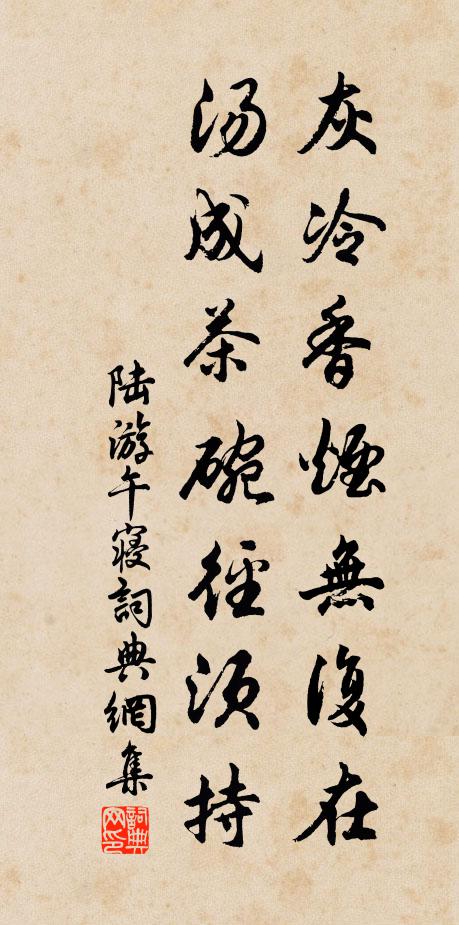 灰冷香煙無復在
湯成茶碗徑須持
陸游午寢詞典網集
詞典网印